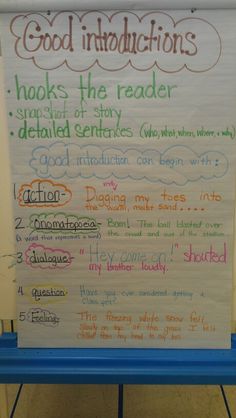 Good introductions
• hooks the reader
• snapshot of story
• detailed sentences (who, what, when, where, & why)
good introduction can begin with:
1. action- Digging my toes into
the warm, moist sand.....
2. Onomatopoeia- Bam! The ball blasted over
(a word that represents a sound) the crowd and out of the stadium.
3. dialogue- "Hey come on!" shouted
my brother loudly.
4. question- Have you ever considered getting a
5. Feeling- The freezing white snow fell
on top of the grass I
from my head to my toes.